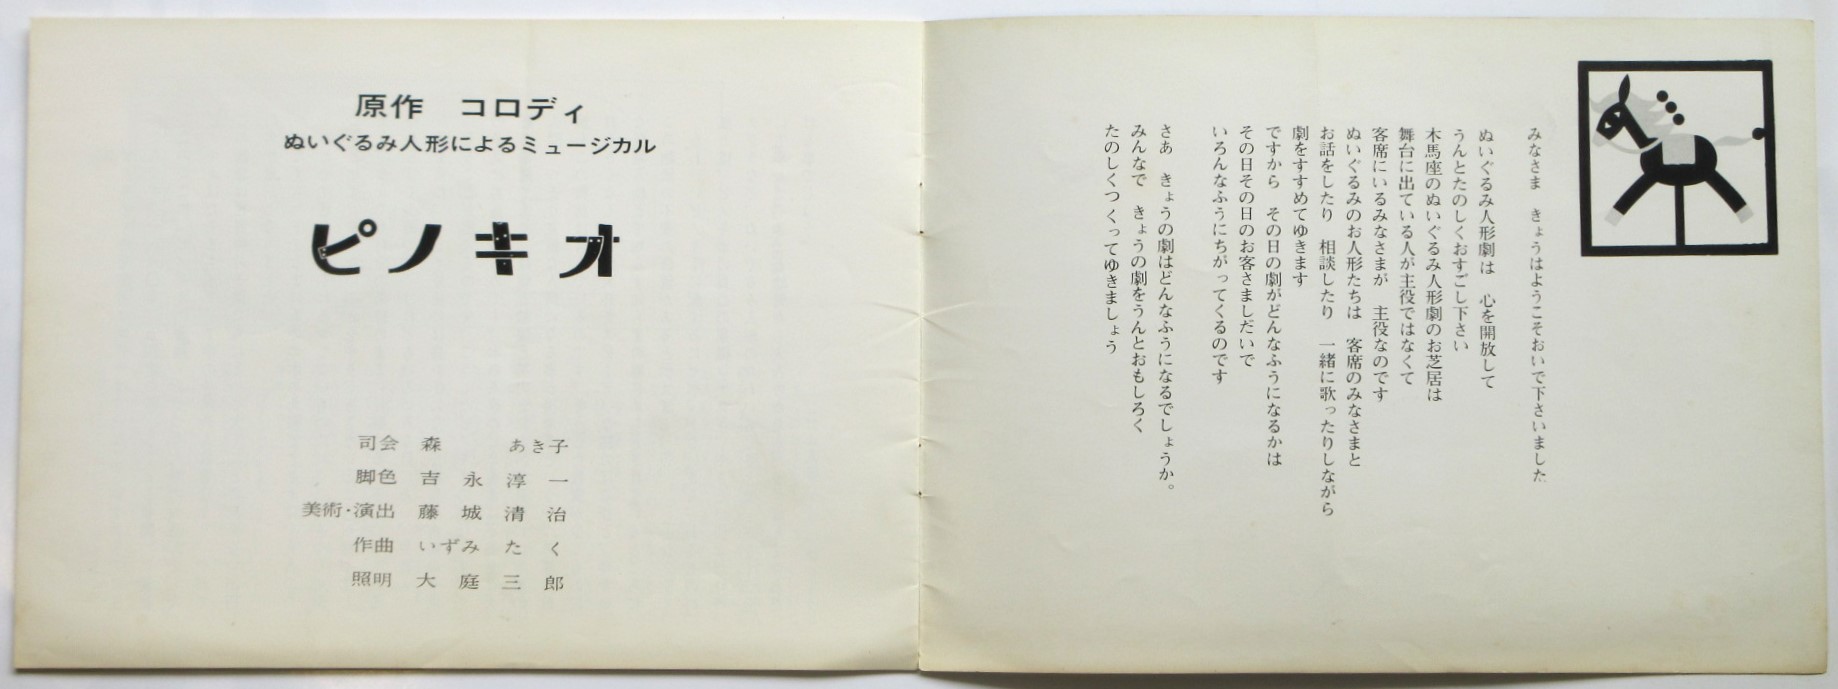 みなさま　きょうはようこそおいで下さいました
ぬいぐるみ人形劇は　心を開放して
うんとたのしくおすごし下さい
木馬座のぬいぐるみ人形劇のお芝居は
舞台に出ている人が主役ではなくて
客席にいるみなさまが　主役なのです
ぬいぐるみのお人形たちは　客席のみなさまと
お話をしたり　相談したり　一緒に歌ったりしながら
劇をすすめてゆきます
ですから　その日の劇がどんなふうになるかは
その日その日のお客さましだいで
いろんなふうにちがってくるのです
さあ　きょうの劇はどんなふうになるでしょうか。
みんなで　きょうの劇をうんとおもしろく
たのしくつくってゆきましょう
原作　コロディ
ぬいぐるみ人形によるミュージカル
ピノキオ
司会　森　あき子
脚色　吉永淳一
美術・演出　藤城清治
作曲　いずみたく
照明　大庭三郎